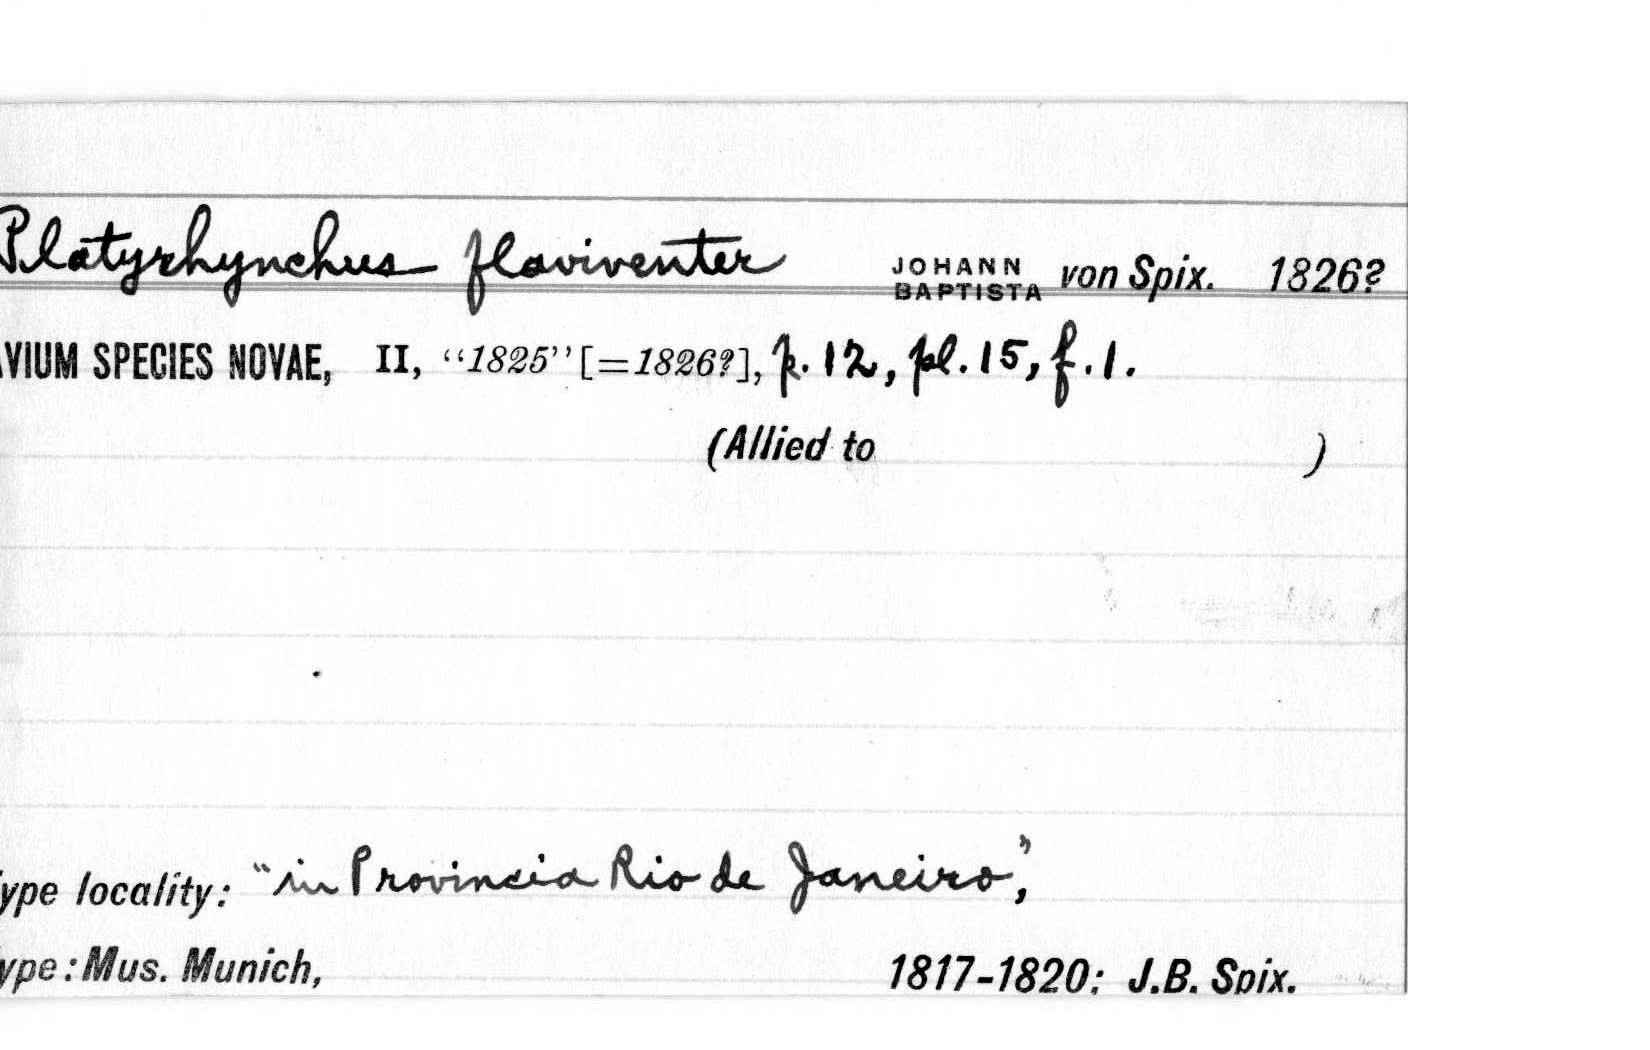 Platyrhynchus flaviventer JOHANN BAPTISTA von Spix. 1826?
AVIUM SPECIES NOVAE, II, "1825" [=1826?], p. 12, pl. 15, f. 1.
(Allied to )
ype locality: "in Provincia Rio de Janeiro",
ype: Mus. Munich, 1817-1820; J.B. Spix.